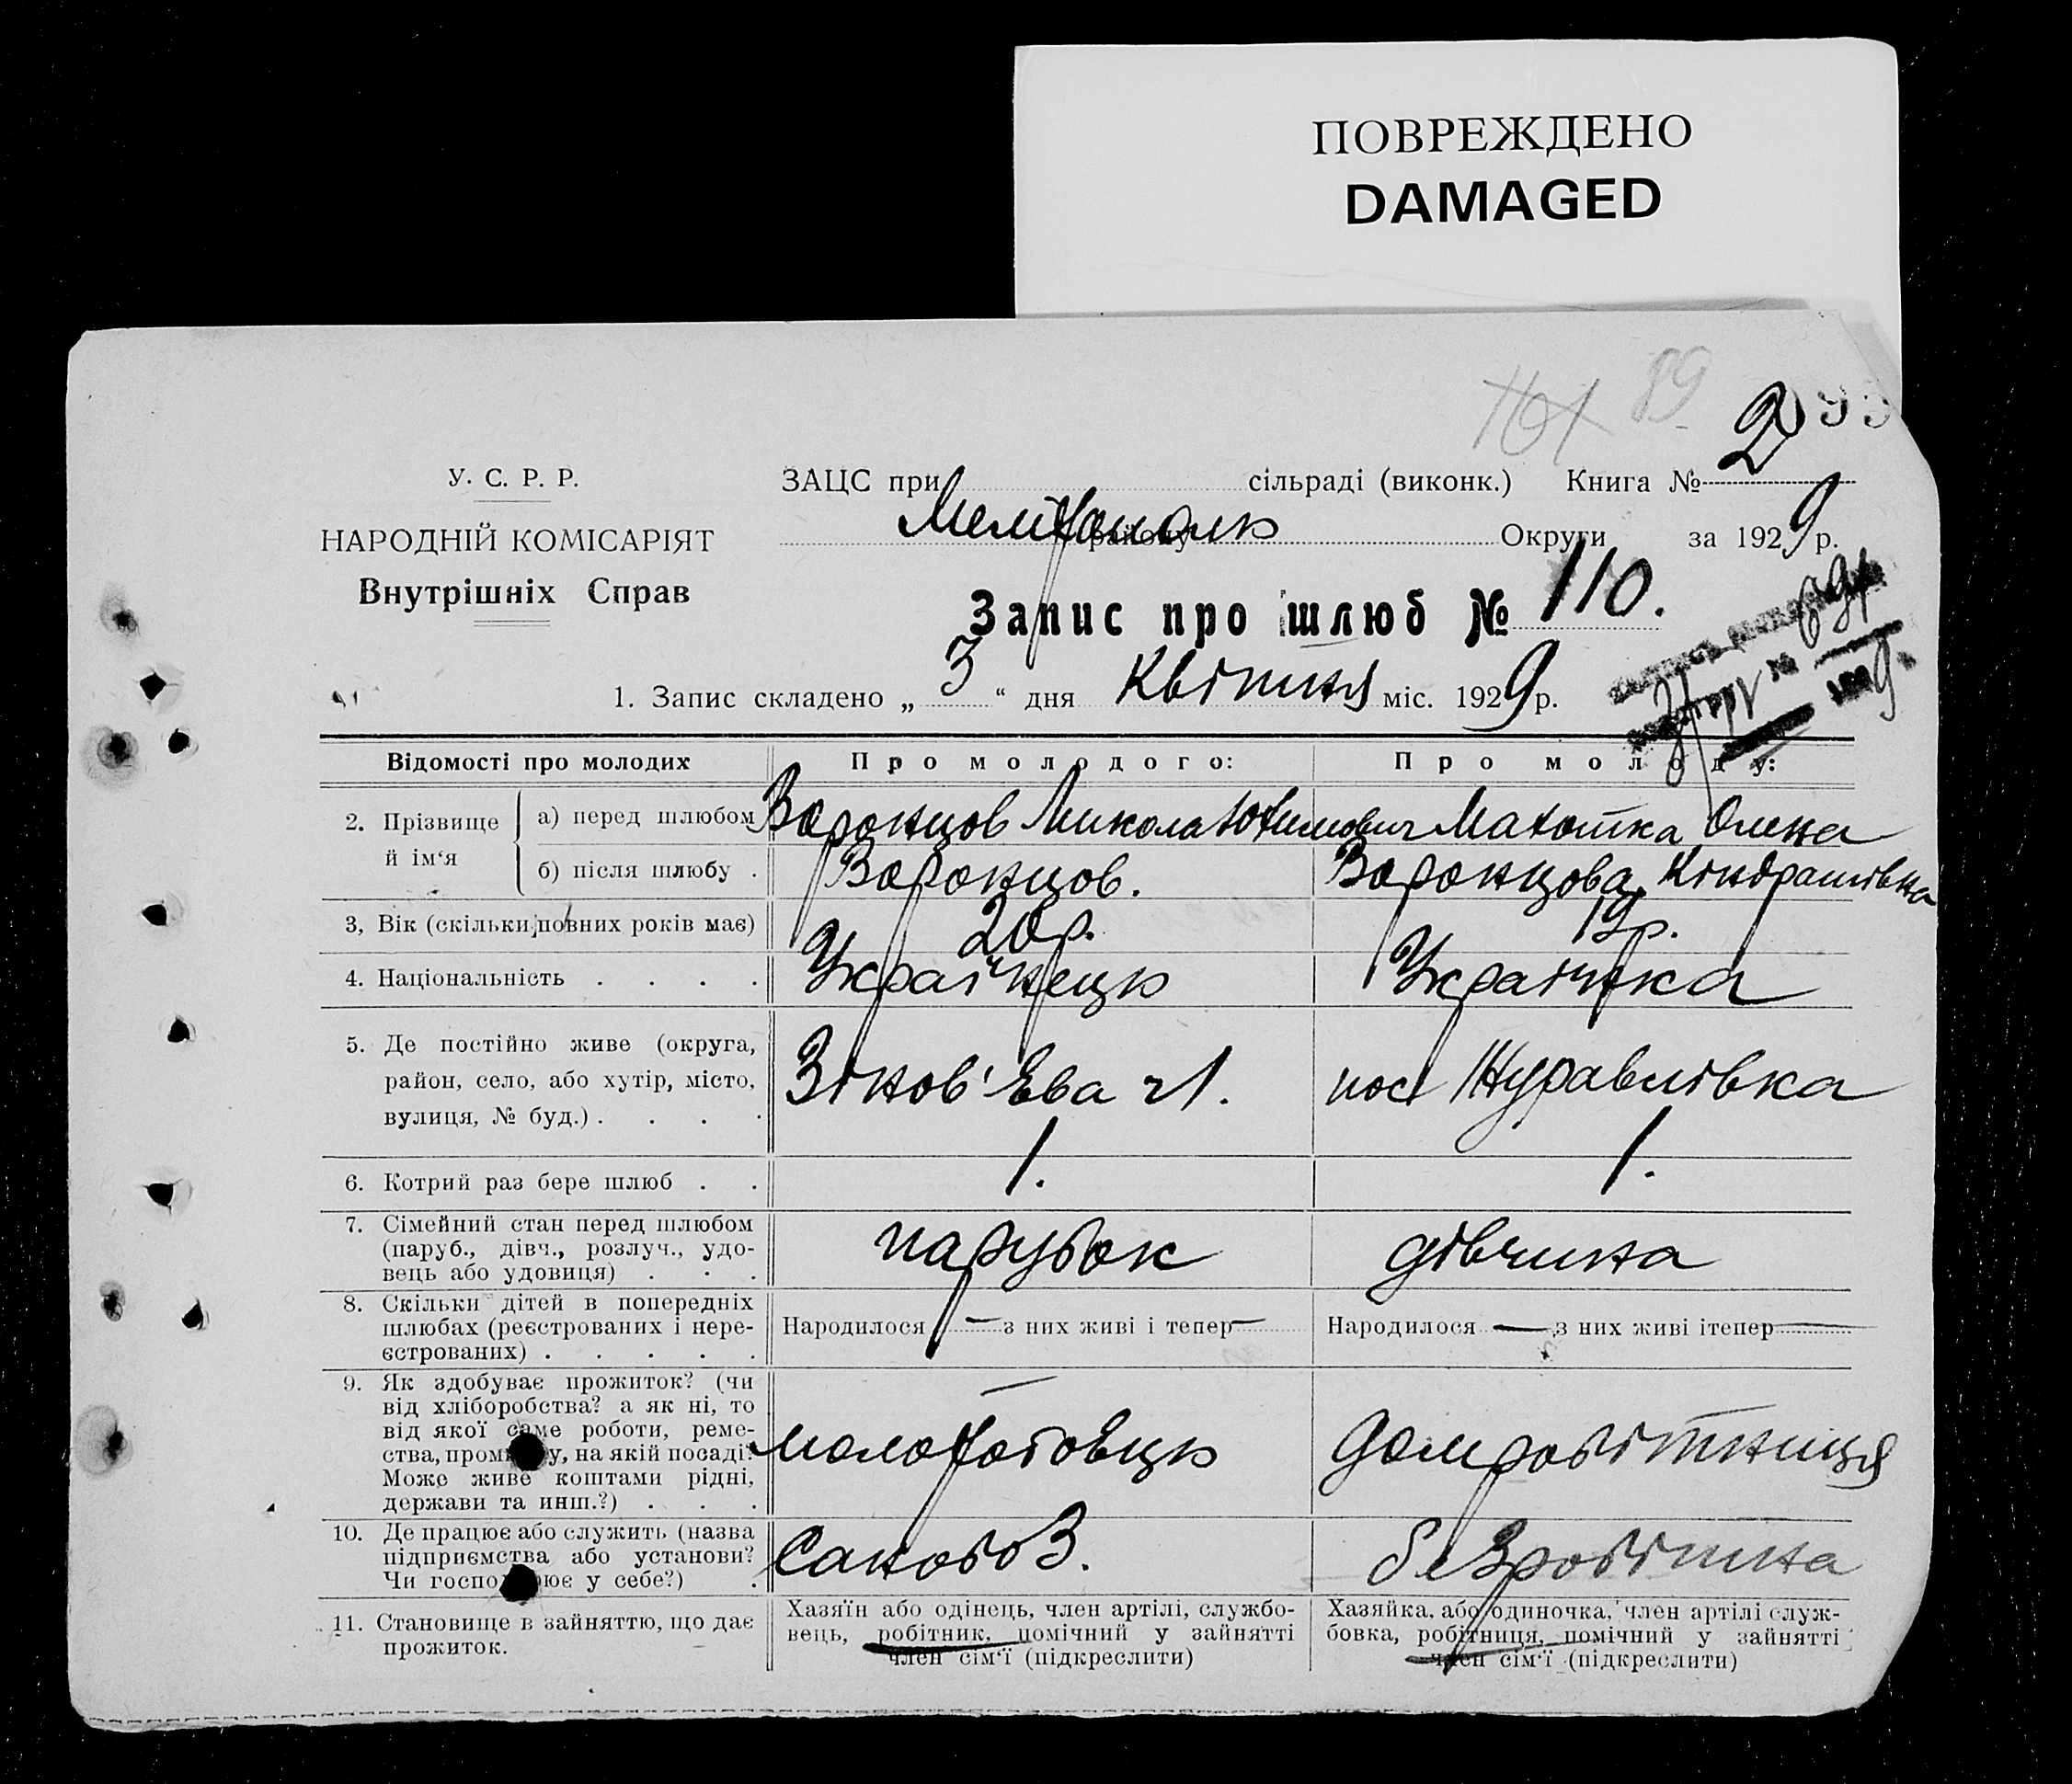 ПОВРЕЖДЕНО
DAMAGED
89
У. С. Р. Р.
НАРОДНІЙ КОМІСАРІЯТ
Внутрішніх Справ
ЗАЦС при сільраді (виконк.) Книга № 2
Мелітополь району Округи за 1929 р.
Запис про шлюб № 110.
1. Запис складено „ 3 “ дня Квітня міс. 1929 р.
Відомості про молодих Про молодого: Про молоду:
2. Прізвище й ім‘я а) перед шлюбом Воронцов Микола Юхимович Махотка Олена
б) після шлюбу . Воронцов. Воронцова Кіндратівна
3, Вік (скільки повних років має) 20 р. 19 р.
4. Національність . . . . Українець Українка
5. Де постійно живе (округа,
район, село, або хутір, місто,
вулиця, № буд.) . . . .
Зінов'Ева 21. пос Журавлівка
6. Котрий раз бере шлюб . . 1. 1.
7. Сімейний стан перед шлюбом
(паруб., дівч., розлуч., удо-
вець або удовиця) . . .
парубок дівчина
8. Скільки дітей в попередніх
шлюбах (реєстрованих і нере-
єстрованих) . . . . .
Народилося — з них живі і тепер — Народилося — з них живі ітепер —
9. Як здобуває прожиток? (чи
від хліборобства? а як ні, то
від якої саме роботи, реме-
ства, пром у, на якій посаді?
Може живе коштами рідні,
держави та инш.?) . . .
молотобовць домробітниця
10. Де працює або служить (назва
підприємства або установи?
Чи госпо ює у себе?) .
безробітна
11. Становище в зайняттю, що дає
прожиток.
Хазяїн або одінець, член артілі, службо-
вець, робітник, помічний у зайнятті
член сім‘ї (підкреслити)
Хазяйка, або одиночка, член артілі служ-
бовка, робітниця, помічний у зайнятті
член сім‘ї (підкреслити)